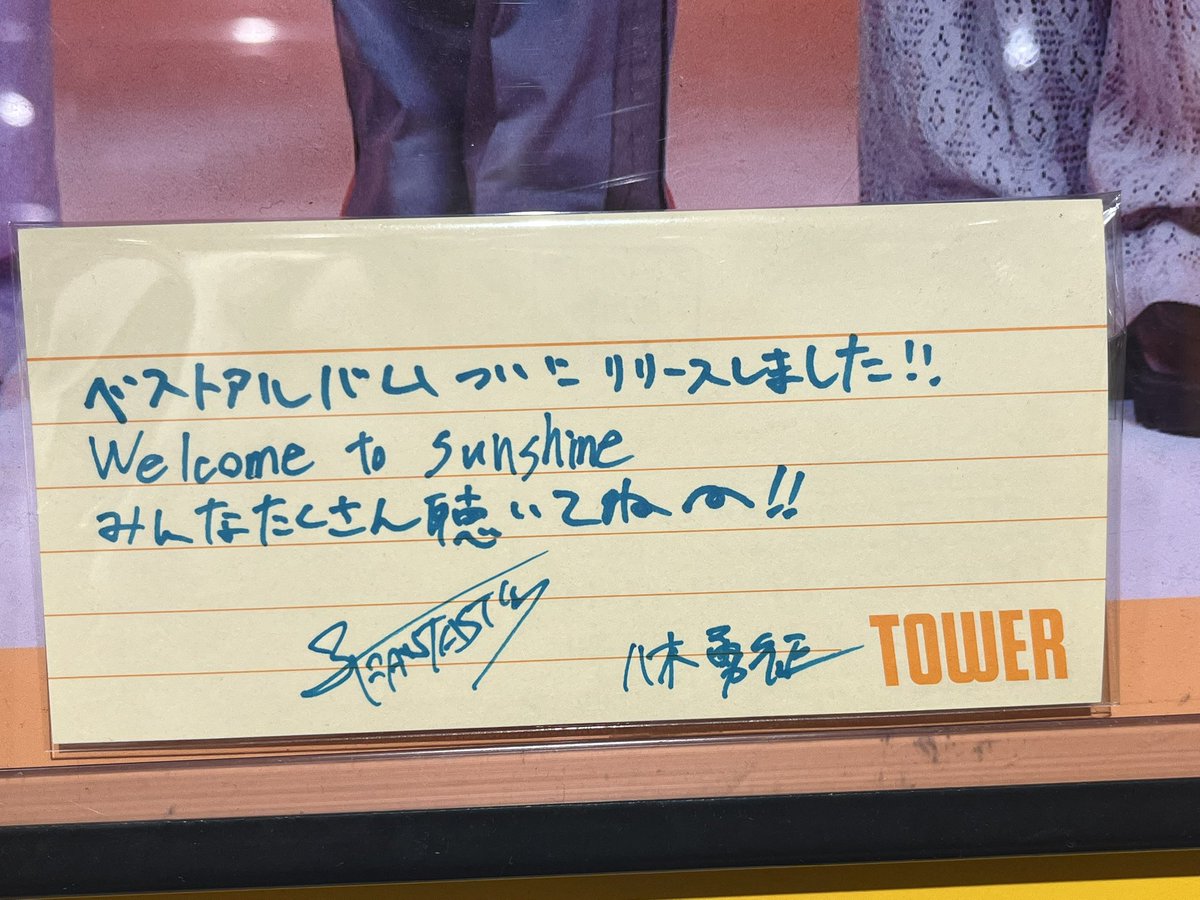 ベストアルバムついにリリースしました!!
Welcome to sunshine
みんなたくさん聴いてね〜!!
FANTASTICS
八木勇征
TOWER